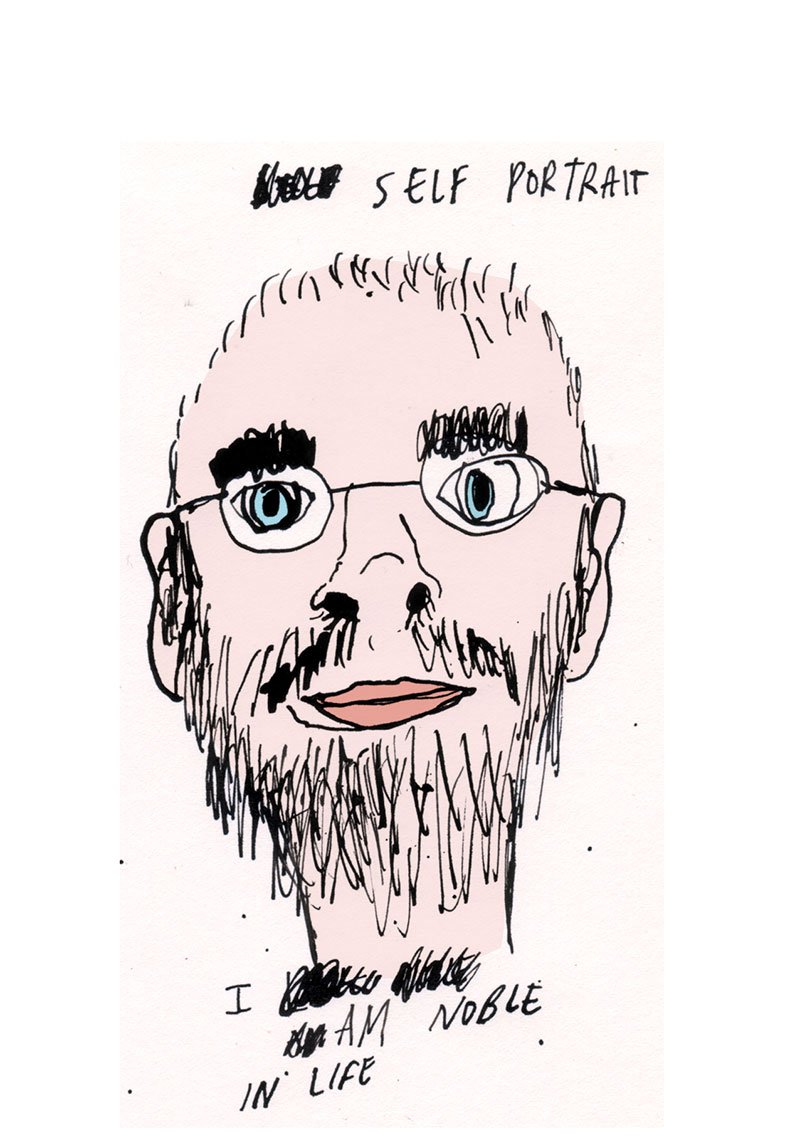 SELF PORTRAIT
I
AM NOBLE
IN LIFE